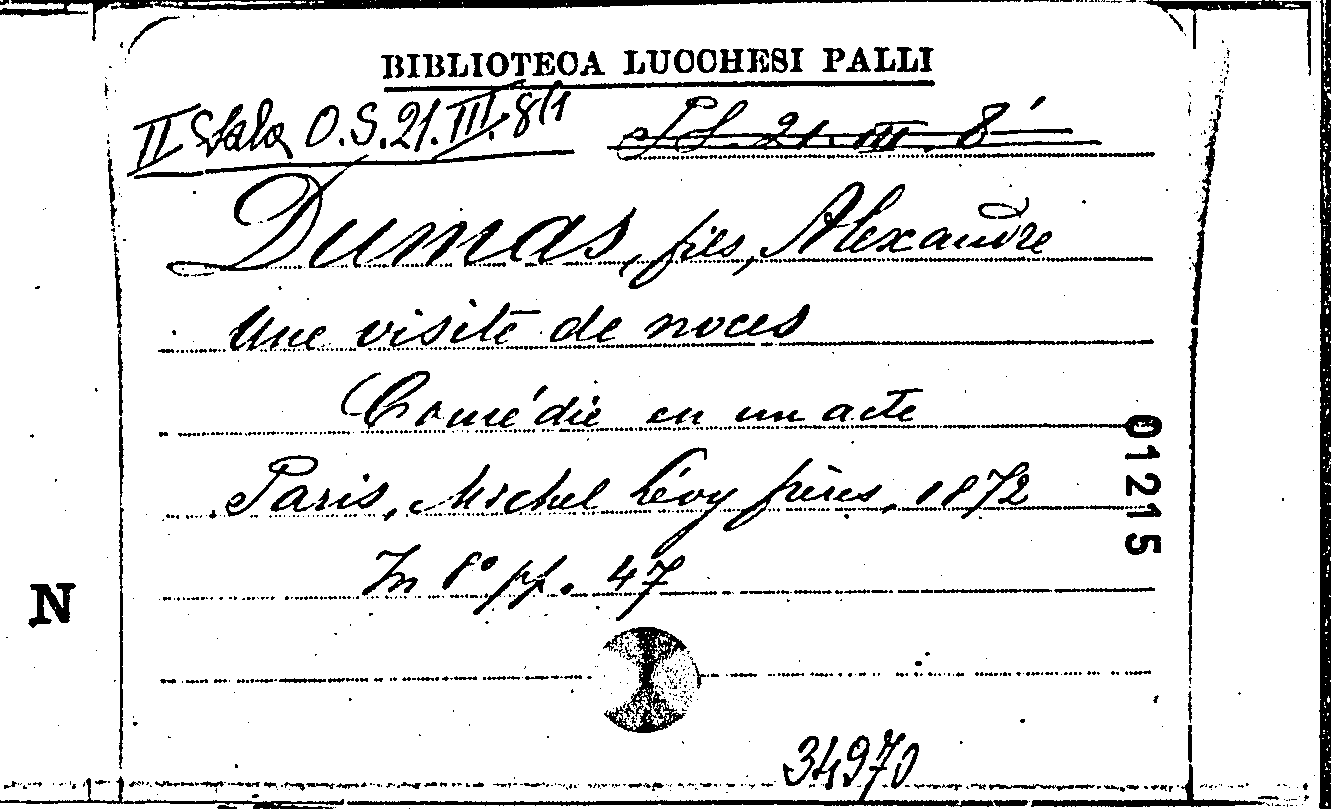 BIBLIOTECA LUCCHESI PALLI
II Sala O.S.21.III.8/1
21.III.8
Dumas, fils, Alexandre
Une visite de noces
Comédie en un acte
Paris, Michel Lévy frères, 1872
In 8° pp. 47
34970
01215
N